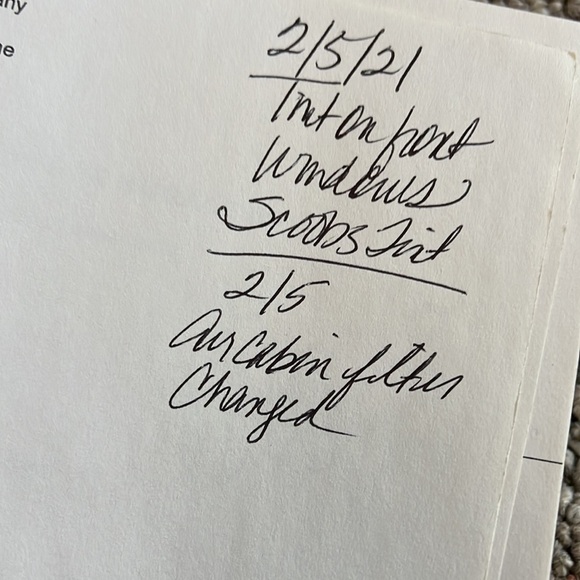 2/5/21
Tint on front
windows
Scoobs Tint
2/5
Air cabin filter
Changed